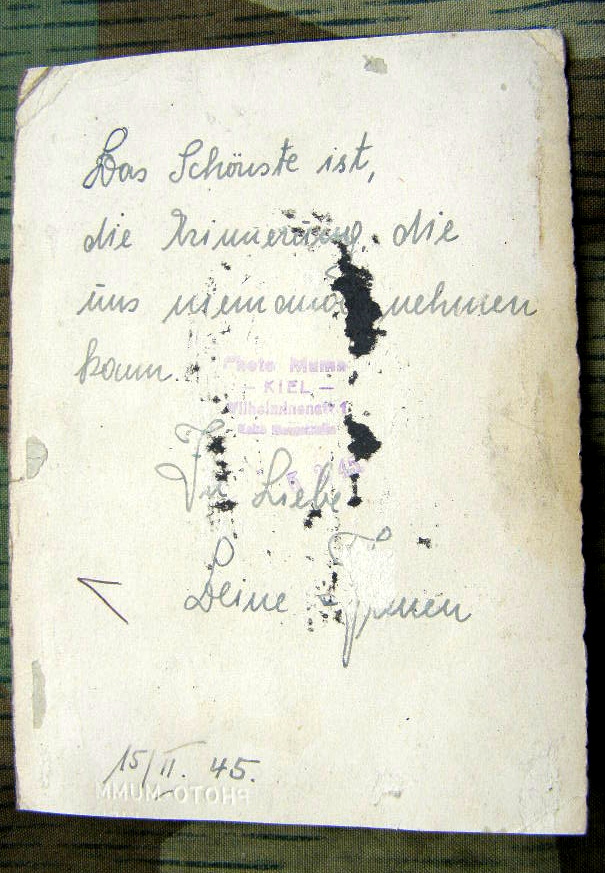 Das Schönste ist,
die Erinnerung, die
uns niemand nehmen
kann.
Photo Mumm
— KIEL —
In Liebe
Deine
15/II. 45.
PHOTO-MUMM